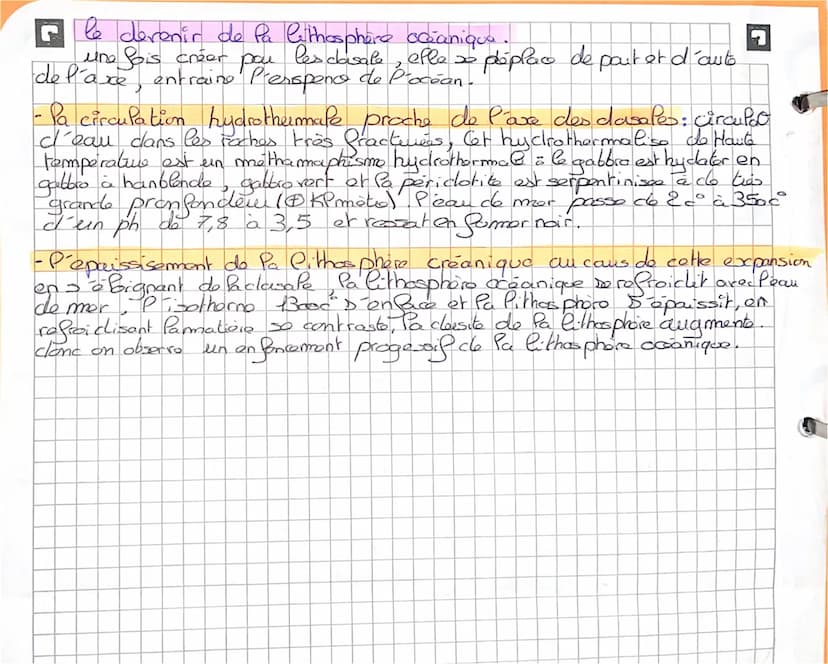 le devenir de la lithosphère océanique.
une fois créer par les dosale, elle se déplace de part et d'autre
de l'axe, entraine l'expence de l'océan.
- la circulation hydrothermale proche de l'axe des dosales: circule
d'eau dans les roches très fracturées, Cet hydrothermalise de Haute
température est un méthamorphisme hydrothermal : le gabbro est hydater en
gabbro à hanblende, gabbro vert et la péridotite est serpentinisée à de très
grande pronfondeur (⊕ KPmète). l'eau de mer passe de 2c° à 350c°
d'un ph de 7,8 à 3,5 et ressort en fumer noir.
- l'épaississement de la lithosphère créanique au cours de cette expansion
en s'éloignant de la dosale, la lithosphère océanique se refroidit avec l'eau
de mer. l'isotherne 1300c° s'enfonce et la lithosphère s'épaissit, en
refroidisant la matière se contracte, la densité de la lithosphère augmente.
donc on observe un enfoncement progessif de la lithosphère océanique.